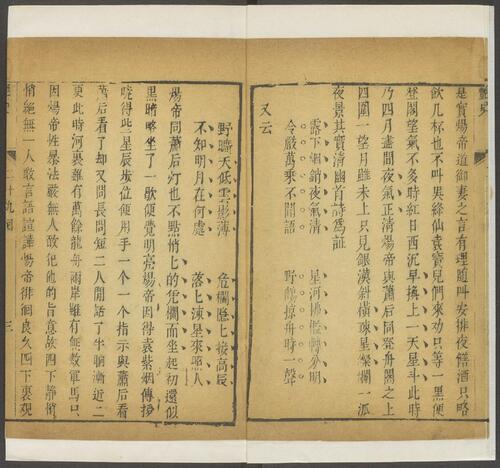 豔史
是實煬帝道御妻之言有理隨叫安排夜膳酒只略
飲几杯也不叫吳絳仙袁寶兒們來勸只等一黑便
登閣望氣不多時紅日西沉早換上一天星斗此時
乃四月盡間夜氣正清煬帝與蕭后同登舟閣之上
四圍一望月雖未上只見銀漢斜橫疎星燦爛一派
夜景其實清幽首詩爲証
露下烟銷夜氣清
星河排檻轉分明
令嚴萬乘不聞語
野鶴掠舟時一聲
又云
野曠天低雲影薄
危欄隱七接高辰
不知明月在何處
落上疎星來照人
煬帝同蕭后灯也不點悄七的凭欄而坐起初還似
黑暗略坐了一歇便覺明亮煬帝因得袁紫烟傳授
曉得些星辰步位便用手一个一个指示與蕭后看
蕭后看了却又問長問短二人閒話了半晌漸近二
更此時河裏雖有萬餘龍舟兩岸雖有無數軍馬只
因煬帝性暴法嚴無人敢犯他的旨意故四下靜悄
悄絕無一人敢言語喧譁煬帝徘徊良久四下裏觀
二十九囘
三